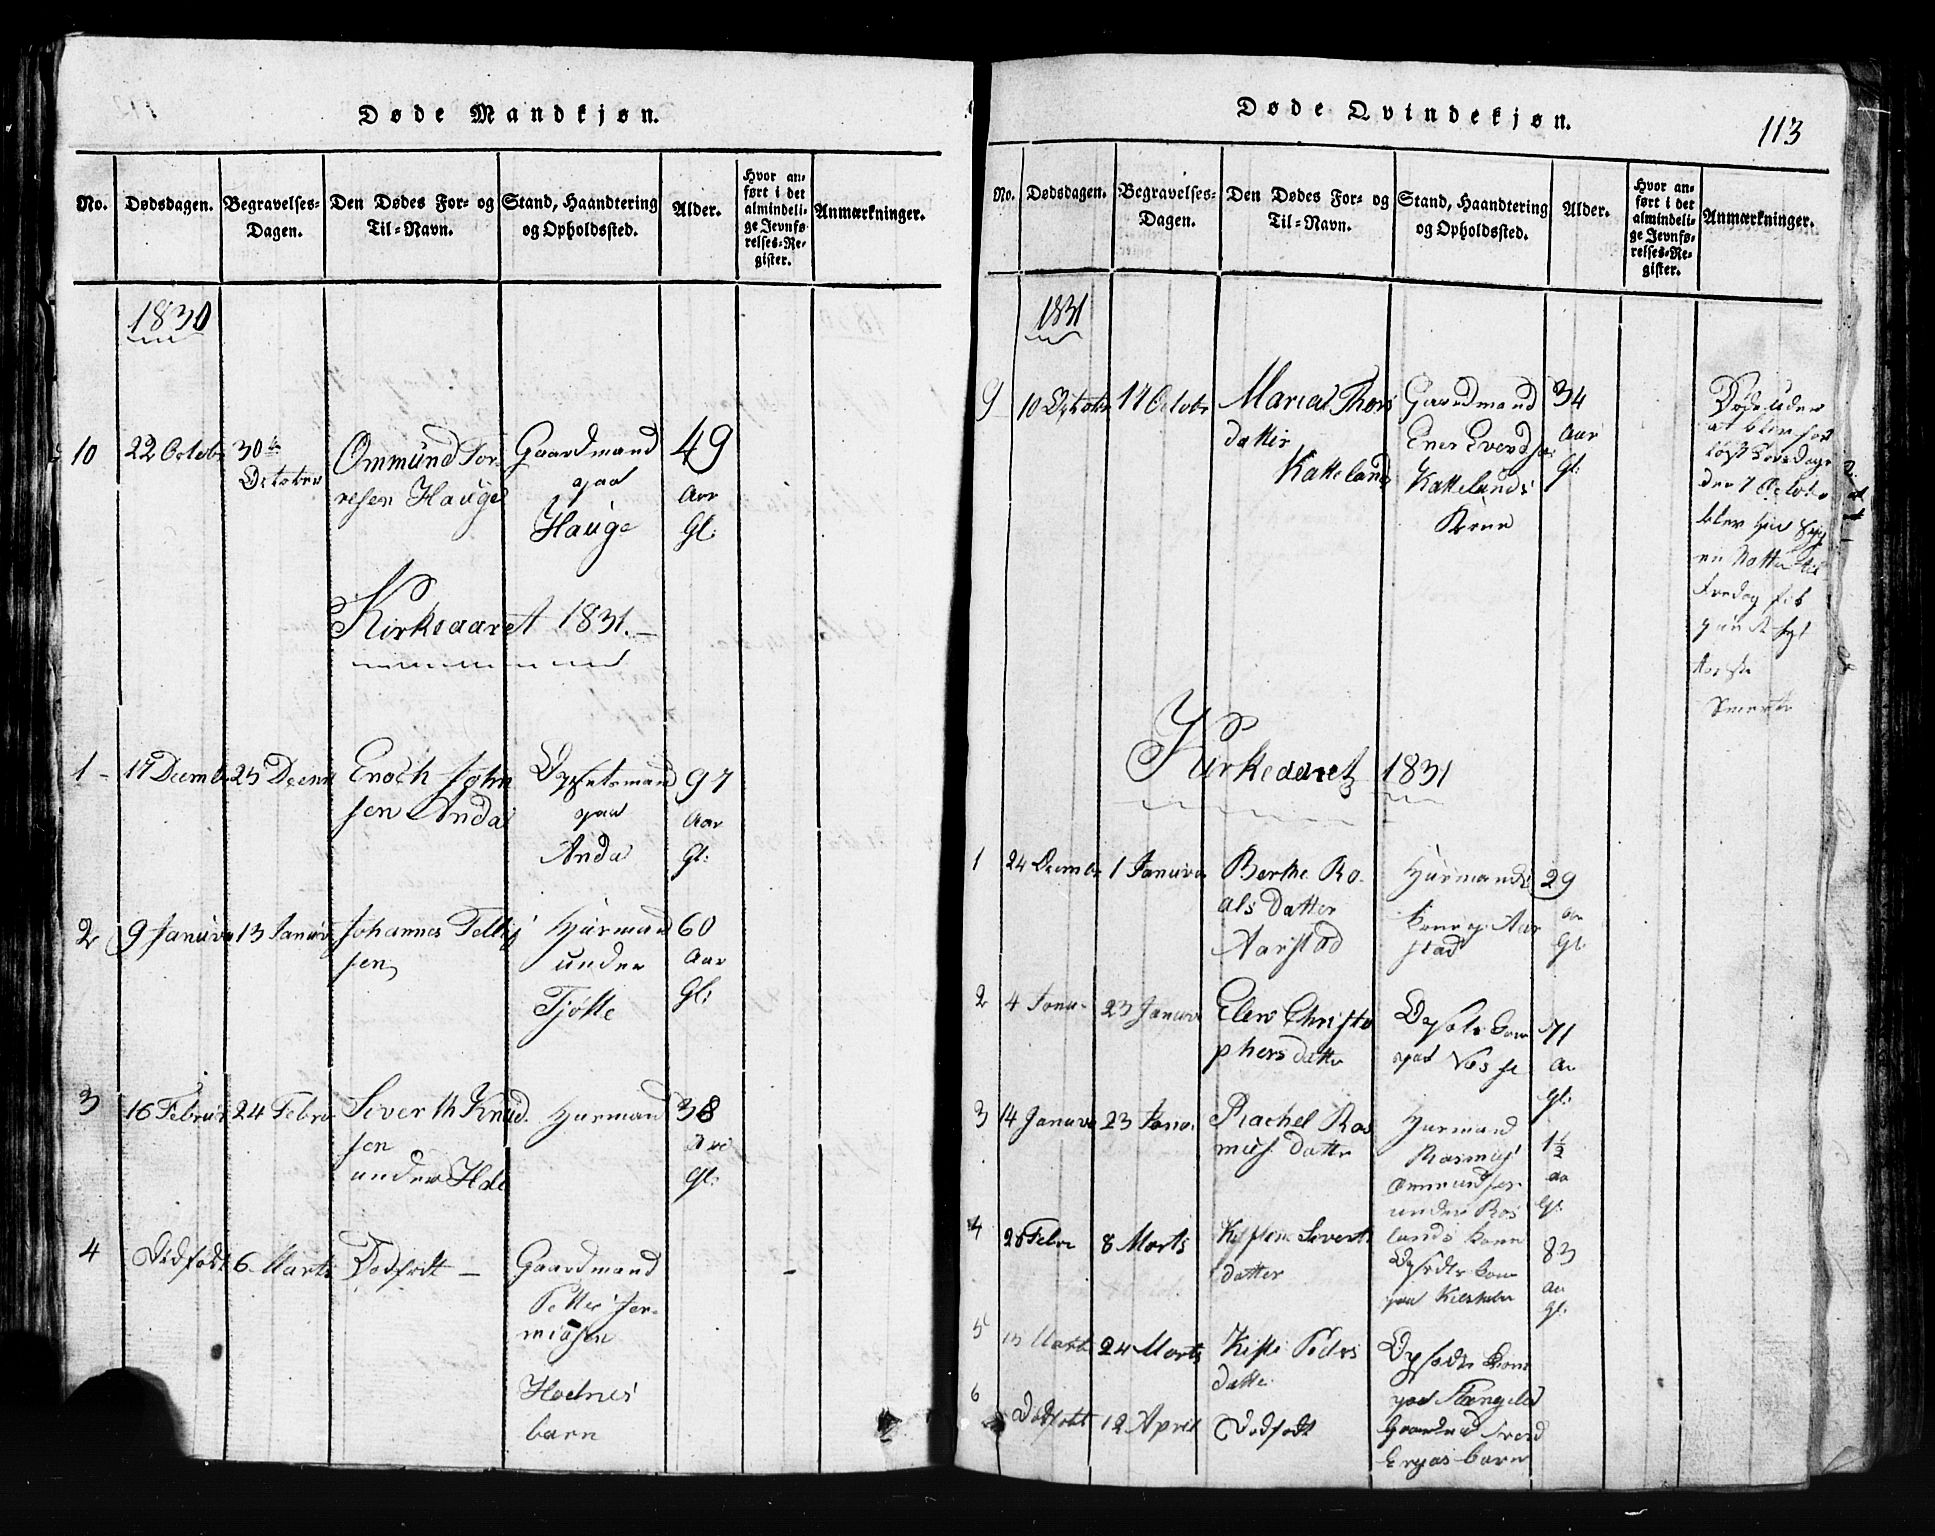 Døde Mandkjøn.
No.
Dødsdagen.
Begravelses-
Dagen.
Den Dødes For- og
Til-Navn.
Stand, Haandtering
og Opholdssted.
Alder.
Hvor an-
ført i det
almindeli-
ge Jevnfø-
relses-Re-
gister.
Anmærkninger.
1830
10
22 Octobr
30te
October
Ommund Tor-
resen Hauge
Gaardmand
paa
Hauge
49
Aar
Gl:
Kirkeaaret 1831.
1
17 Decembr
25 Decemb
Enoch John
sen Anda
Opsetsmand
paa
Anda
97
Aar
Gl:
2
9 Januar
13 Januar
Johannes Tollis
sen
Huusmand
under
Tjøtte
60
Aar
Gl:
3
16 Februar
24 Febru
Siverth Knud-
sen
under Hole
Huusmand
38
Aar
Gl:
4
Dødfødt
6 Marts
Dødfødt
Gaardmand
Petter Jer-
miasen
Hodnes
barn
Døde Qvindekjøn.
113
No.
Dødsdagen.
Begravelses-
Dagen.
Den Dødes For- og
Til-Navn.
Stand, Haandtering
og Opholdssted.
Alder.
Hvor an-
ført i det
almindeli-
ge Jevnfø-
relses-Re-
gister.
Anmærkninger.
1831
9
10 October
17 Octobr
Maria Thors
datter
Katteland
Gaardmand
Ener Evendsen
Kattelands
Kone
34
Aar
Gl:
Døde uden
at blev for
løst Torsdage
den 7 Octobr
blev hun syg
en Natten til
Fredag fik
smerte
Kirkeaaret 1831
1
24 Decembr
1 Januar
Berthe Ro-
als Datter
Aarstad
Huusmands
Kone p. Aar
stad
29
aar
Gl.
2
4 Janu-
23 Januar
Elen Christo
phers datter
paa
71
aar
Gl:
3
14 Januar
23 Janua
Rachel Ras
mus datter
Huusmand
Rasmus
Ommundsen
under Ros
lands barn
1½
aar
Gl:
4
28 Febr
8 Marts
Sivert
datter
paa
83
aar
Gl:
5
13 Marts
24 Marts
Kisti Peders
datte
paa Stangeland
6
Dødfødt
12 April
Dødfødt
barn